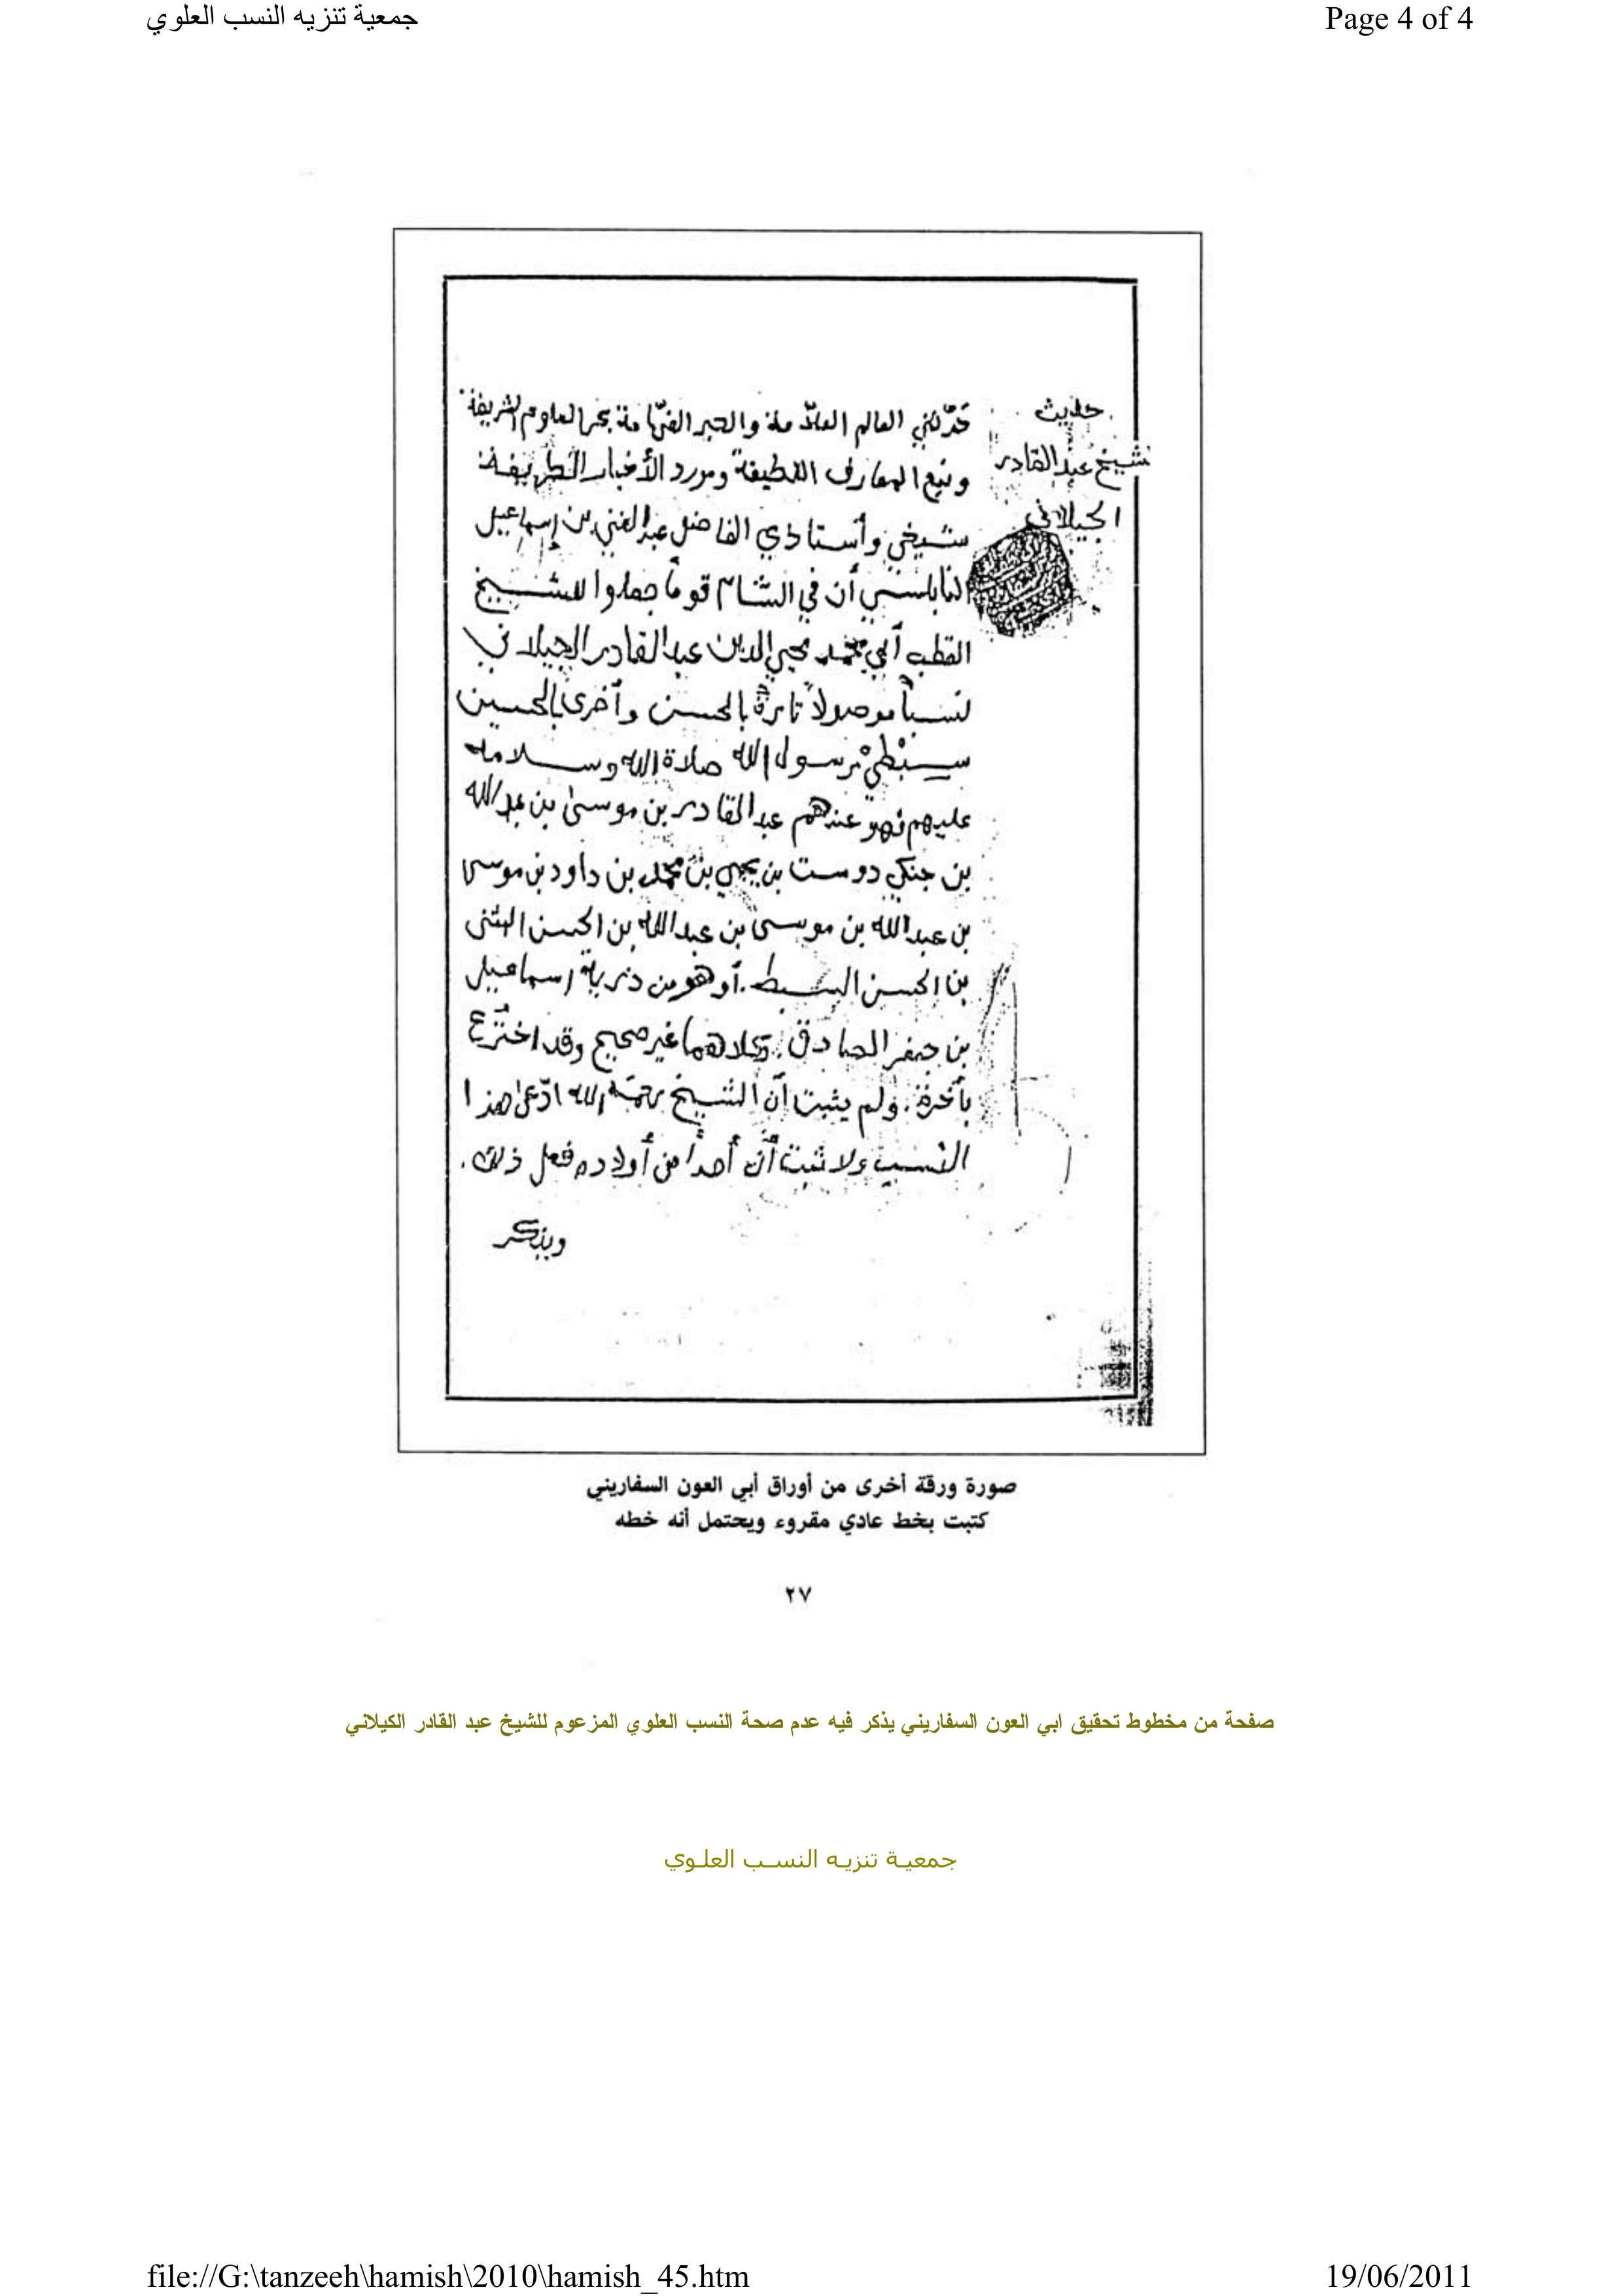 جمعية تنزيه النسب العلوي
Page 4 of 4
حديث
شيخ عبد القادر
الجيلاني
حَدّثني العالم العلاّمة والحبر الفهّامة بحر العلوم الشريفة
ونبع المعارف اللطيفة ومورد الأخبار الظريفة
شيخي وأستاذي الفاضل عبد الغني بن إسماعيل
النابلسي أن في الشام قوماً جعلوا للشيخ
القطب أبي محمد محيي الدين عبد القادر الجيلاني
نسباً موصولاً تارةً بالحسن وأخرى بالحسين
سبْطيْ رسول الله صلاة الله وسلامه
عليهم فهو عندهم عبد القادر بن موسىٰ بن عبد الله
بن جنكي دوست بن يحيي بن محمد بن داود بن موسى
بن عبد الله بن موسىٰ بن عبد الله بن الحسن المثنى
بن الحسن السبط. أو هو من ذرية إسماعيل
بن جعفر الصادق. وكلاهما غير صحيح وقد اختُرع
بأخرة. ولم يثبت أنّ الشيخ رحمه الله ادّعىٰ هذا
النسب ولا ثبت أنّ أحداً من أولاده فعل ذلك.
ويذكر
صورة ورقة أخرى من أوراق أبي العون السفاريني
كتبت بخط عادي مقروء ويحتمل أنه خطه
٢٧
صفحة من مخطوط تحقيق ابي العون السفاريني يذكر فيه عدم صحة النسب العلوي المزعوم للشيخ عبد القادر الكيلاني
جمعيـة تنزيـه النسـب العلـوي
file://G:\tanzeeh\hamish\2010\hamish_45.htm
19/06/2011